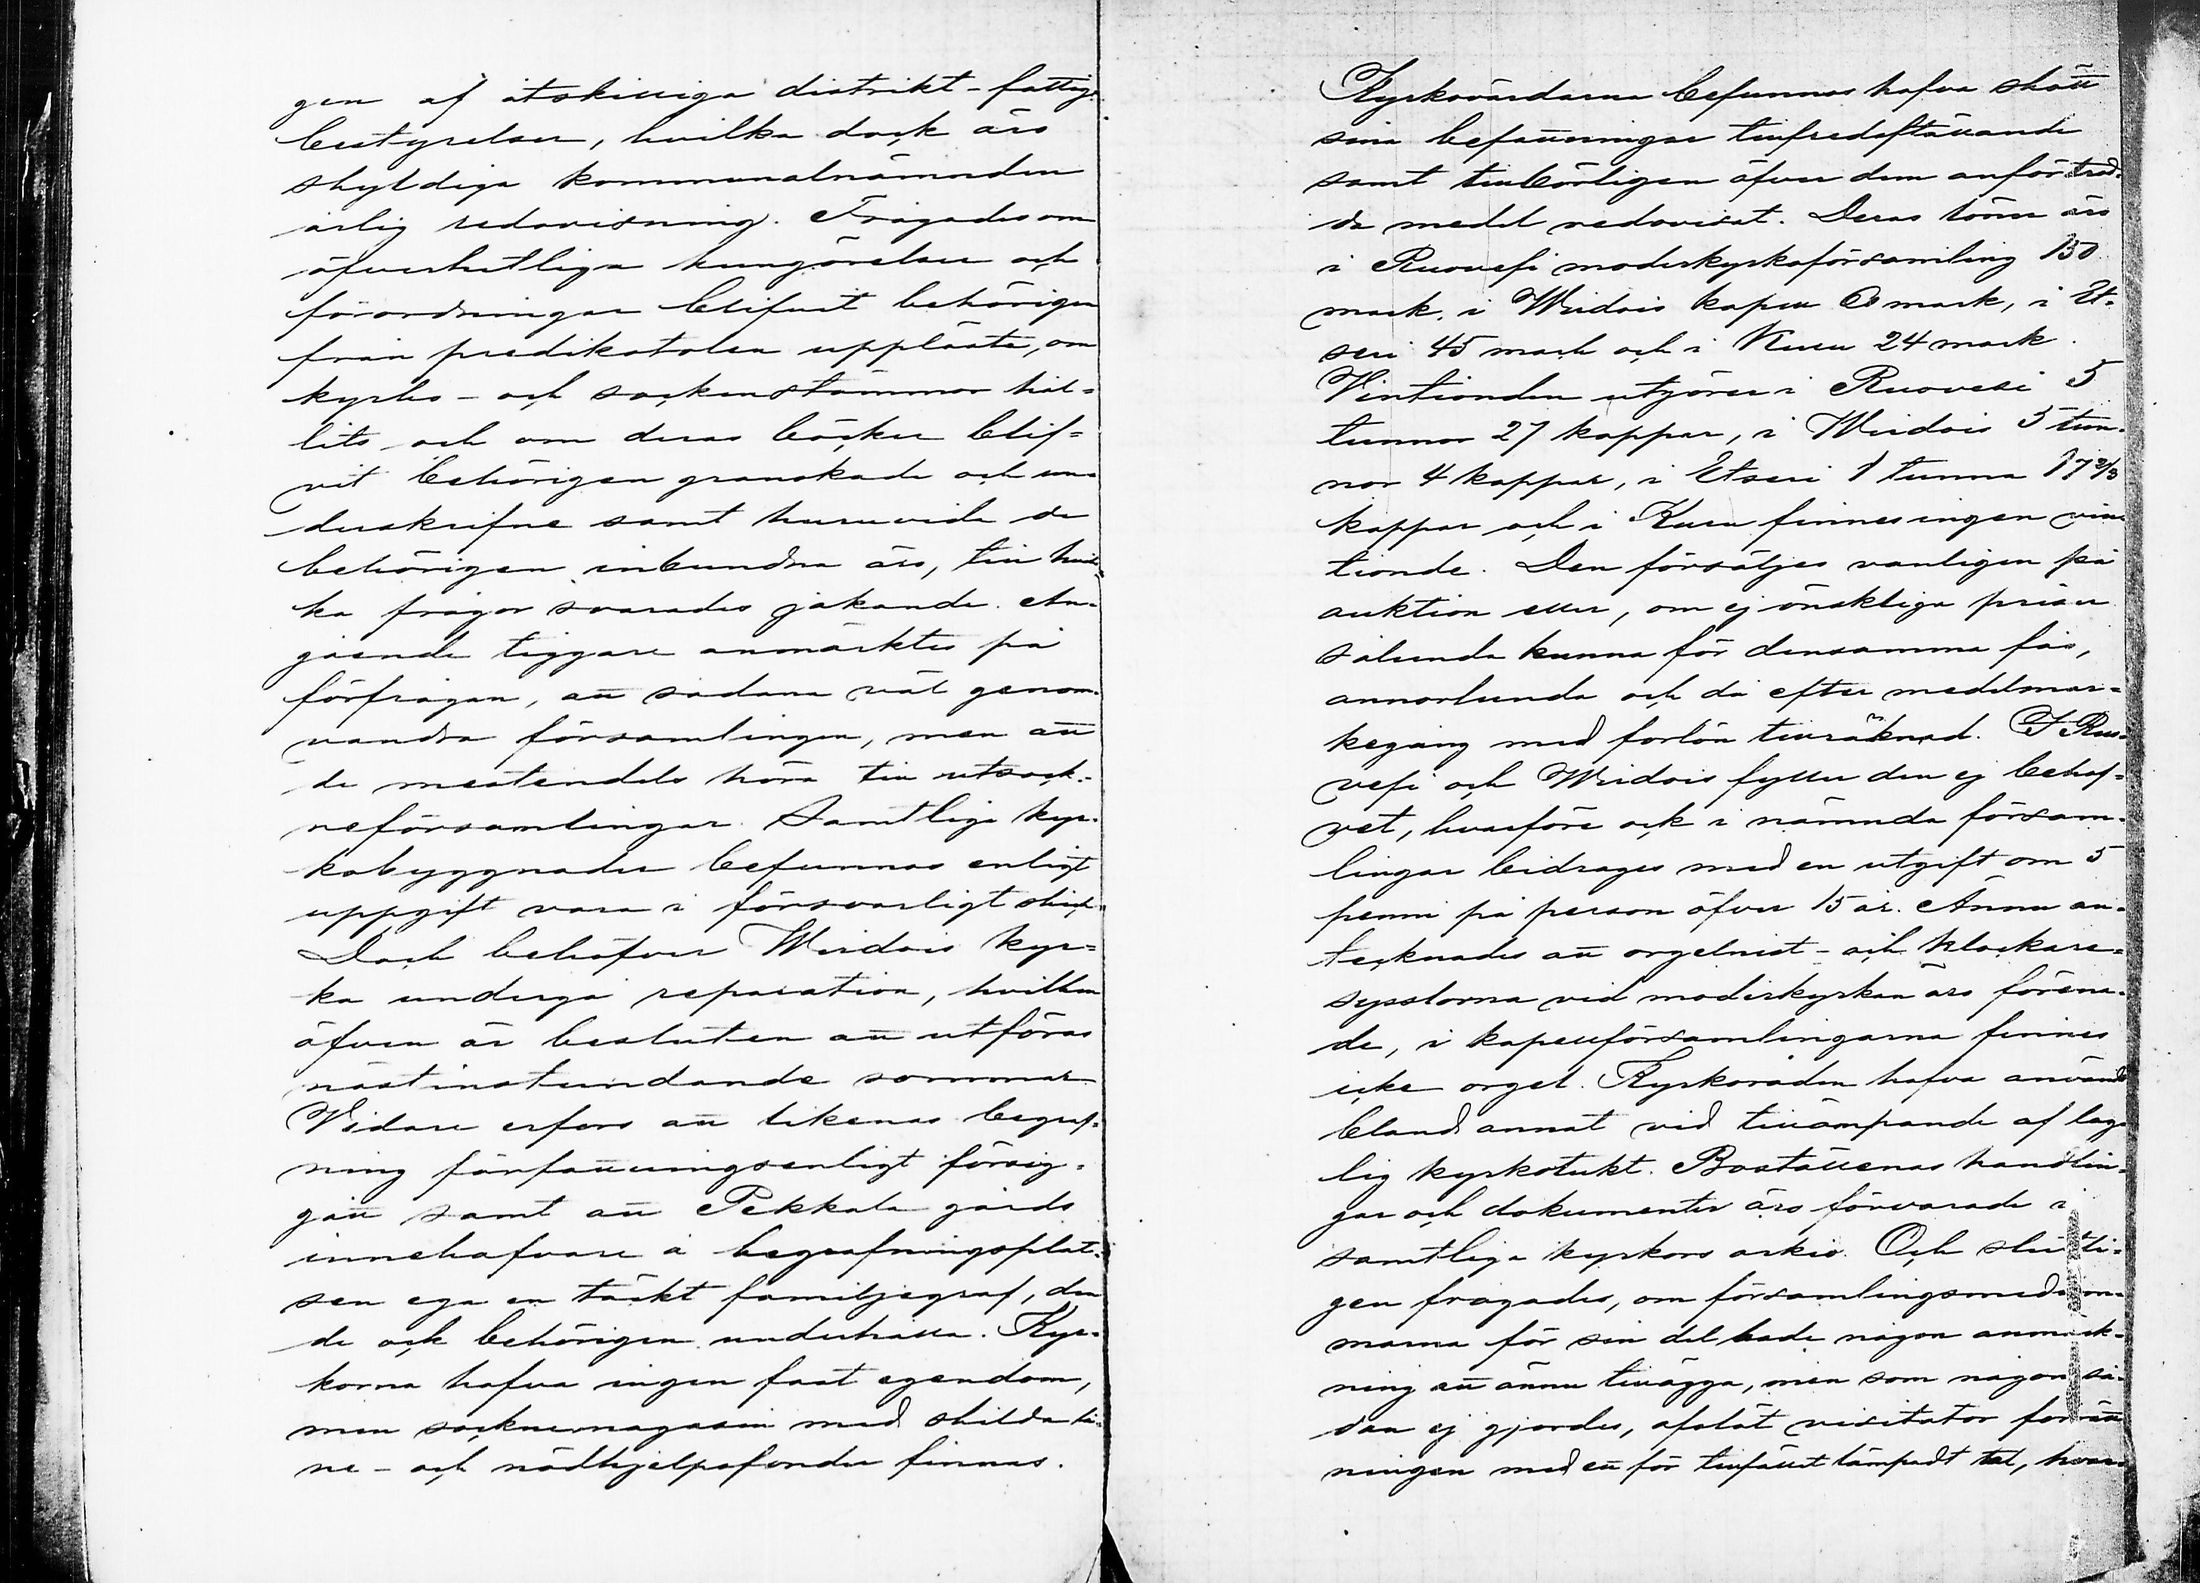 gen af åtskilliga distrikt-fattig-
bestyrelser, hvilka dock äro
skyldiga kommunalnämnden
årlig redovisning. Frågades om
öfverhetliga kungörelser och
förordningar blifvit behörigen
från predikstolen upplästa, om
kyrko- och sockenstämmor hål-
lits och om deras böcker blif-
vit behörigen granskade och un-
derskrifne samt huruvida de
behörigen inbundna äro, till hvil-
ka frågor svarades jakande. An-
gående tiggare anmärktes på
förfrågan, att sådana väl genom-
vandra församlingen, men att
de mestendels höra till utsock-
neförsamlingar. Samtliga kyr-
kobyggnader befunnos enligt
uppgift vara i försvarligt skick.
Dock behöfver Wirdois kyr-
ka undergå reparation, hvilken
äfven är besluten att utföras
nästinstundande sommar.
Vidare erfors att likenas begraf-
ning författningsenligt försig-
gått samt att Pekkala gårds
innehafvare å begrafningsplat-
sen ega en täckt familjegraf, den
de ock behörigen underhålla. Kyr-
korna hafva ingen fast egendom,
men socknemagasin med skilda lå-
ne- och nödhjelpsfonder finnas.
Kyrkovärdarna befunnos hafva skött
sina befattningar tillfredsställande
samt tillbörligen öfver dem anförtrod-
da medel redovisat. Deras löner äro
i Ruovesi moderkyrkoförsamling 150
mark, i Wirdois kapell 60 mark, i Et-
seri 45 mark och i Kuru 24 mark.
Vintionden utgöres i Ruovesi 5
tunnor 27 kappar, i Wirdois 5 tun-
nor 4 kappar, i Etseri 1 tunna 17 2/3
kappar och i Kuru finnes ingen vin-
tionde. Den försäljes vanligen på
auktion eller, om ej önskliga priser
sålunda kunna för densamma fås,
annorlunda och då efter medelmar-
kegång med forlön tillräknad. I Ruo-
vesi och Wirdois fyller den ej behof-
vet, hvarföre ock i nämnda försam-
lingar bidrages med en utgift om 5
penni på person öfver 15 år. Ännu an-
tecknades att orgelnist- och klockare-
sysslorna vid moderkyrkan äro förena-
de, i kapellförsamlingarna finnes
icke orgel. Kyrkoråden hafva användts
bland annat vid tillämpande af lag-
lig kyrkotukt. Boställenas handlin-
gar och dokumenter äro förvarade i
samtliga kyrkors arkiv. Och slutli-
gen frågades, om församlingsmedlem-
marna för sin del hade någon anmärk-
ning att ännu tillägga, men som någon så-
dan ej gjordes, afslöt visitator förrätt-
ningen med ett för tillfället lämpadt tal, hvar-